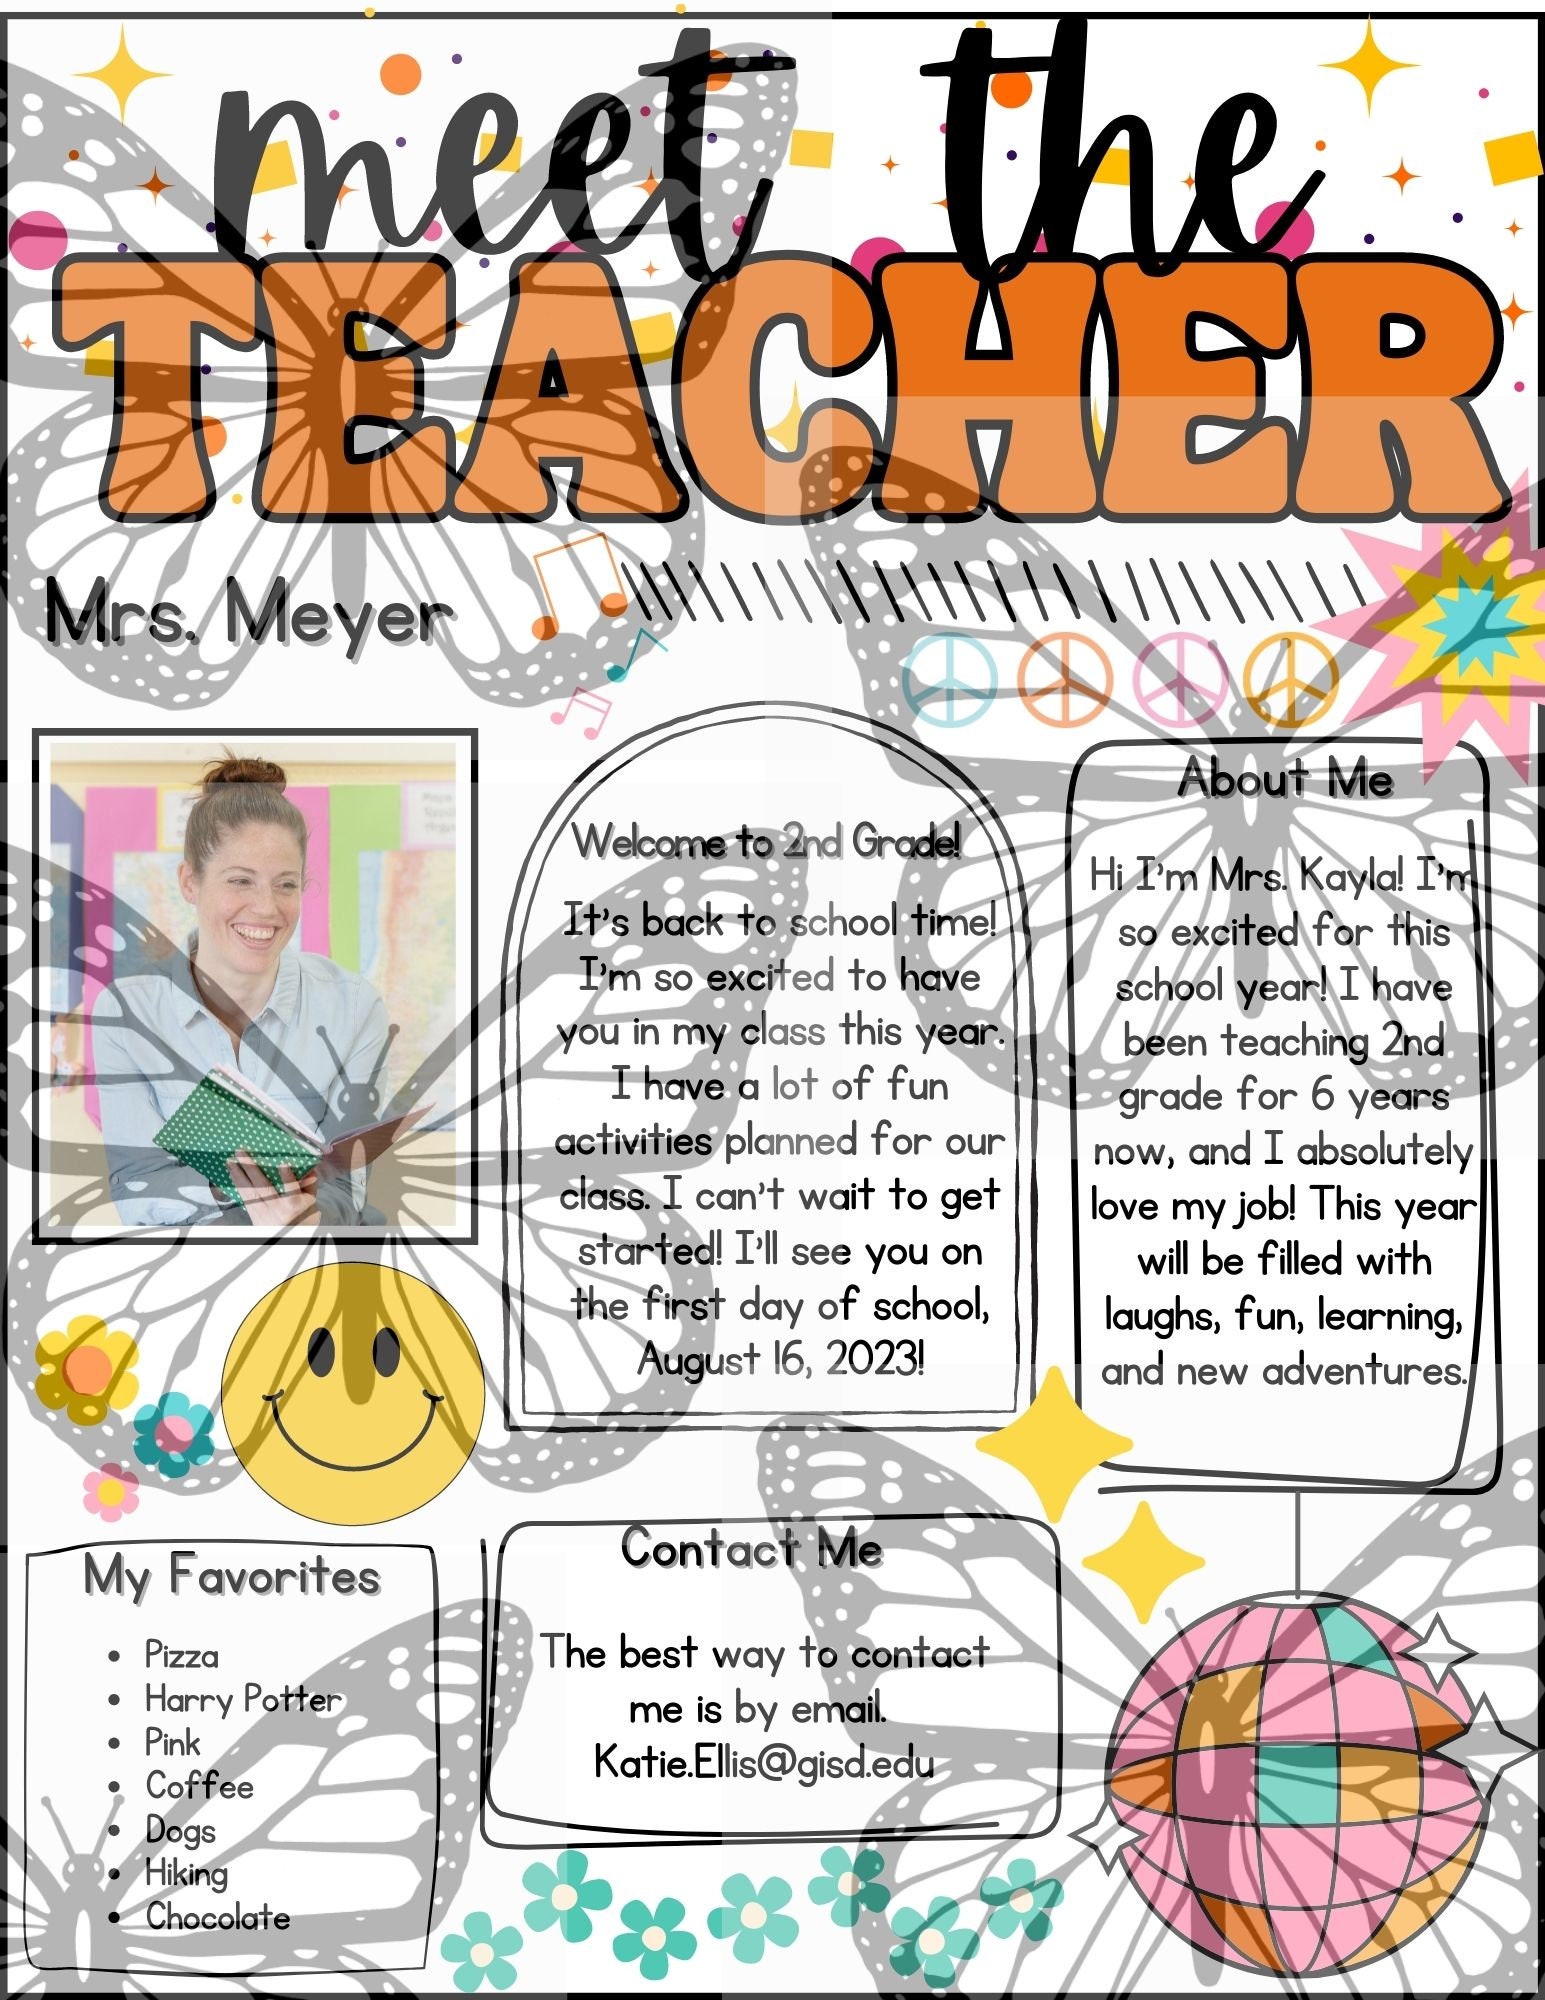 meet the
TEACHER
Mrs. Meyer
Welcome to 2nd Grade!
It's back to school time!
I'm so excited to have
you in my class this year.
I have a lot of fun
activities planned for our
class. I can't wait to get
started! I'll see you on
the first day of school,
August 16, 2023!
About Me
Hi I'm Mrs. Kayla! I'm
so excited for this
school year! I have
been teaching 2nd
grade for 6 years
now, and I absolutely
love my job! This year
will be filled with
laughs, fun, learning,
and new adventures.
My Favorites
• Pizza
• Harry Potter
• Pink
• Coffee
• Dogs
• Hiking
• Chocolate
Contact Me
The best way to contact
me is by email.
Katie.Ellis@gisd.edu